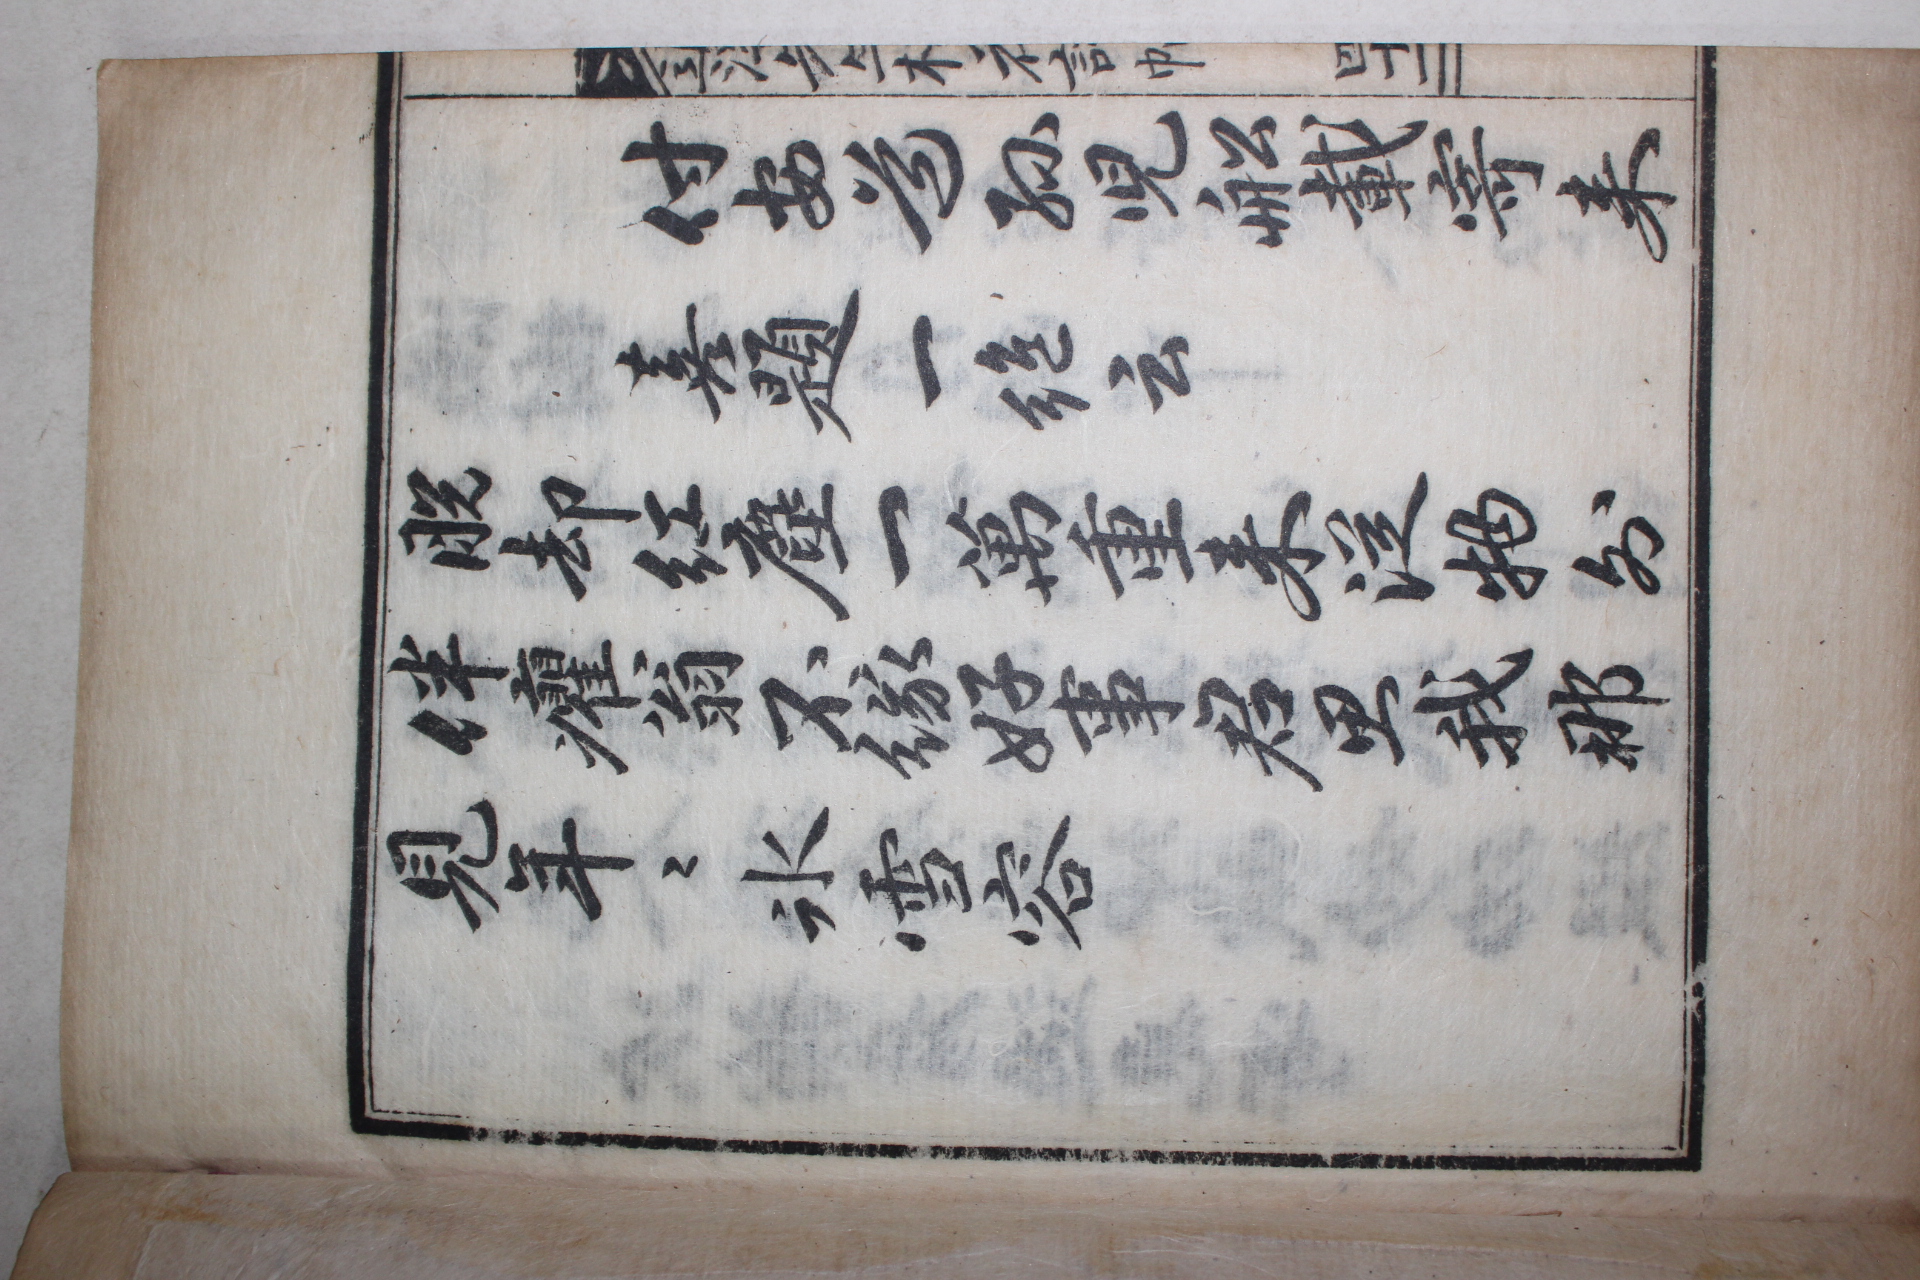 退溪先生梅花詩帖
四十二
付安道孫兒船載寄来
喜題一絶云
脫却紅塵一萬重来從物外
伴癯翁不緣好事君思我那
見年〻氷雪容